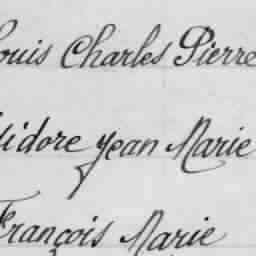 Louis Charles Pierre
Isidore Jean Marie
François Marie